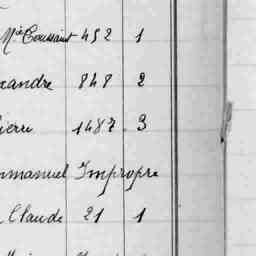 Mie Toussaint 452 1
xandre 848 2
ierre 1487 3
mmanuel Impropre
Claude 21 1